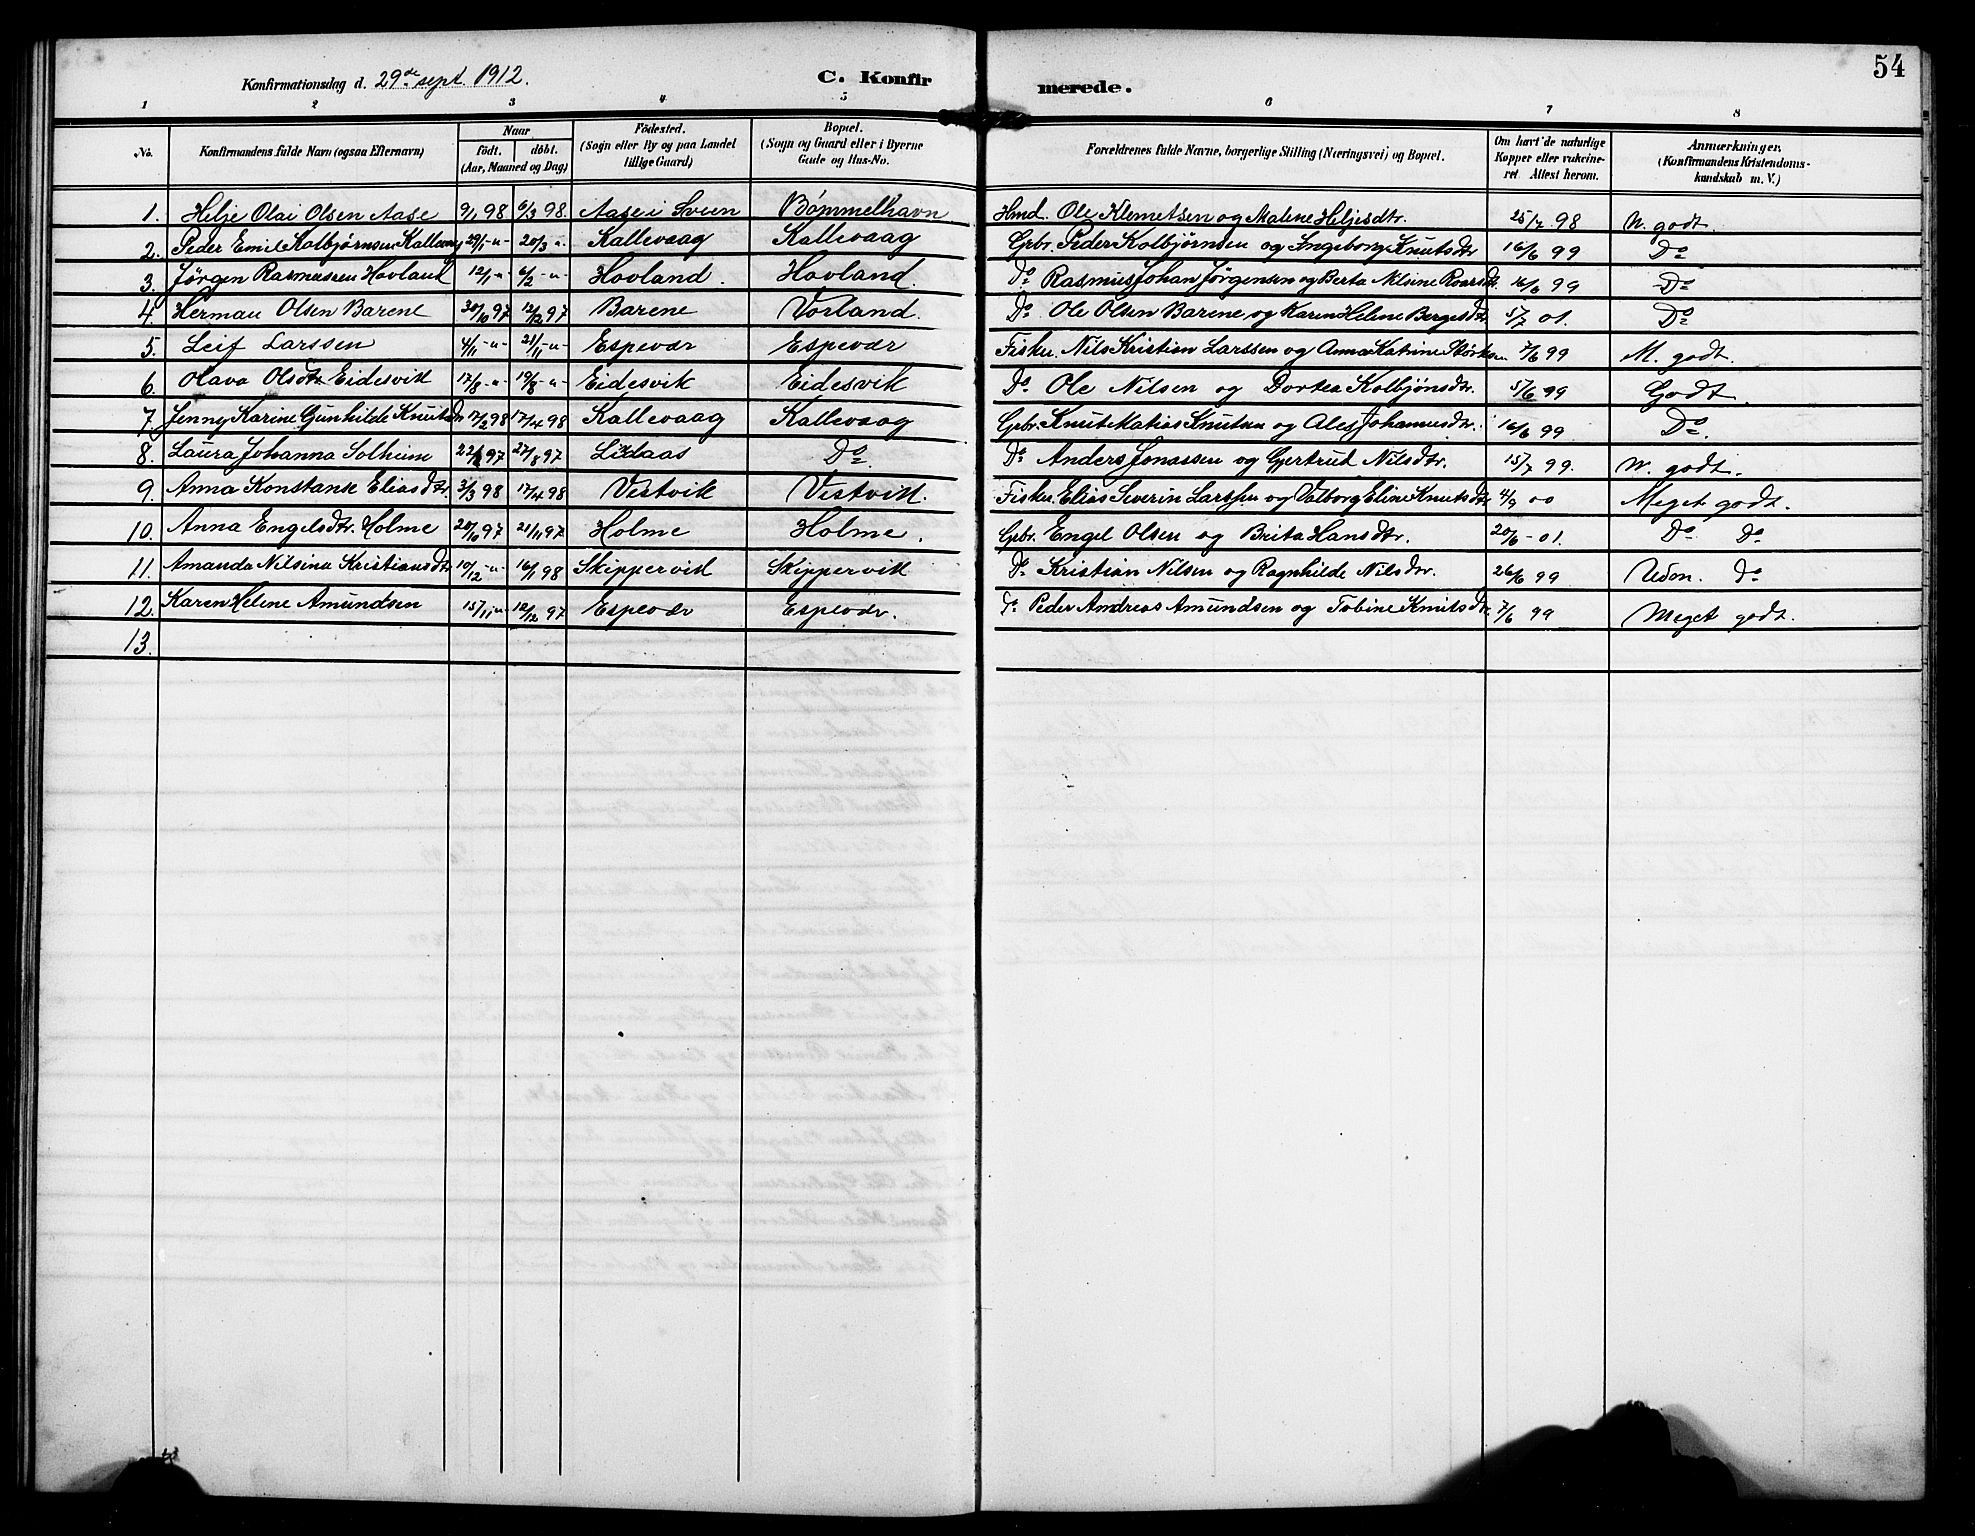 54
Konfirmationsdag d. 29de sept. 1912. C. Konfirmerede.
1 2 3 4 5 6 7 8
No. Konfirmandens fulde Navn (ogsaa Efternavn) Naar födt. döbt. (Aar, Maaned og Dag) Födested. (Sogn eller By og paa Landet tillige Gaard) Bopæl. (Sogn og Gaard eller i Byerne Gade og Hus-No. Forældrenes fulde Navne, borgerlige Stilling (Næringsvei) og Bopæl. Om havt de naturlige Kopper eller vakcineret. Attest herom. Anmærkninger. (Konfirmandens Kristendomskundskab m. V.)
1. Helje Olai Olsen Aase 9/1 98 6/3 98 Aase i Sveen Bømmelhavn Hmd. Ole Klemetsen og Malene Heljesdtr. 25/7 98 N. godt.
2. Peder Emil Kolbjørnsen Kallevaag 29/1 -"- 20/3 ". Kallevaag Kallevaag Gbr. Peder Kolbjørnsen og Ingeborg Knutsdtr 16/6 99 Do
3. Jørgen Rasmussen Hovland 12/1 -"- 6/2 -"- Hovland. Hovland. Do Rasmus Johan Jørgensen og Berta Nilsine Roarsdtr. 16/6 99 Do
4. Herman Olsen Barene 30/10 97 12/12 97 Barene Vorland. Do Ole Olsen Barene og Karen Helene Bergesdtr 5/7 01. Do
5. Leif Larssen 4/11 -"- 21/11 -"- Espevær Espevær Fisker. Nils Kristian Larssen og Anna Katrine Størksen 7/6 99 M. godt.
6. Olava Olsdtr. Eidesvik 17/8 -"- 19/8 -"- Eidesvik Eidesvik Do Ole Nilsen og Dortea Kolbjønsdtr. 5/6 99 Godt.
7. Jenny Karine Gunhilde Knutsdtr 17/2 98 17/4 98 Kallevaag Kallevaag Gbr. Knut Matias Knutsen og Ales Johannesdtr. 16/6 99 Do.
8. Laura Johanna Solheim 22/ 97 27/8 97 Liaas Do. Do Anders Jonassen og Gjertrud Nilsdtr. 15/7 99. N. godt.
9. Anna Konstanse Eliasdtr. 3/3 98 17/4 98 Vestvik Vestvik. Fisker. Elias Severin Larssen og Valborg Eline Knutsdtr 4/9 00 Meget godt.
10. Anna Engelsdtr. Holme 20/10 97 21/11 97 Holme Holme. Gbr. Engel Olsen og Brita Hansdtr. 20/6 - 01. Do Do
11. Amanda Nilsina Kristiansdtr 10/12 -"- 16/1 98 Skippervik Skippervik Do Kristian Nilsen og Ragnhilde Nilsdtr. 26/6 99 Udm. Do
12. Karen Helene Amundsen 15/11 " 12/12 97 Espevær Espevær. Do Peder Andreas Amundsen og Tobine Knutsdtr. 7/6 99 Meget godt.
13.